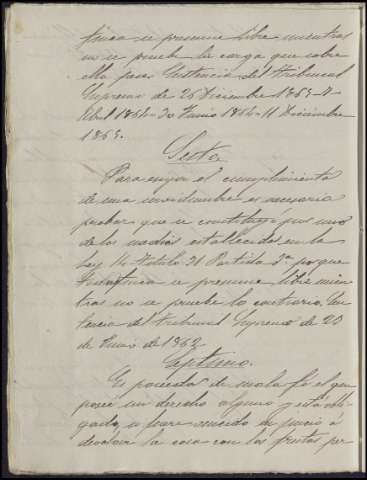 finca se presume libre mientras
no se pruebe la carga que sobre
ella pesa Sentencia del Tribunal
Supremo de 26 Diciembre 1863-
Abril 1864-30 Junio 1864-11 Diciembre
1865.
Sesto
Para exijir el cumplimiento
de una servidumbre es necesario
probar que se constituyó por uno
de los medios establecidos en la
Ley 14 Titulo 31 Partida 3ª porque
finca se presume libre mien
tras no se pruebe lo contrario. Sen
tencia del Tribunal Supremo de 20
de Enero de 1862
Septimo.
Es poseedor de mala fé el que
posee un derecho alguno y está obli
gado, si fuere vencido en juicio á
devolver la cosa con los frutos per